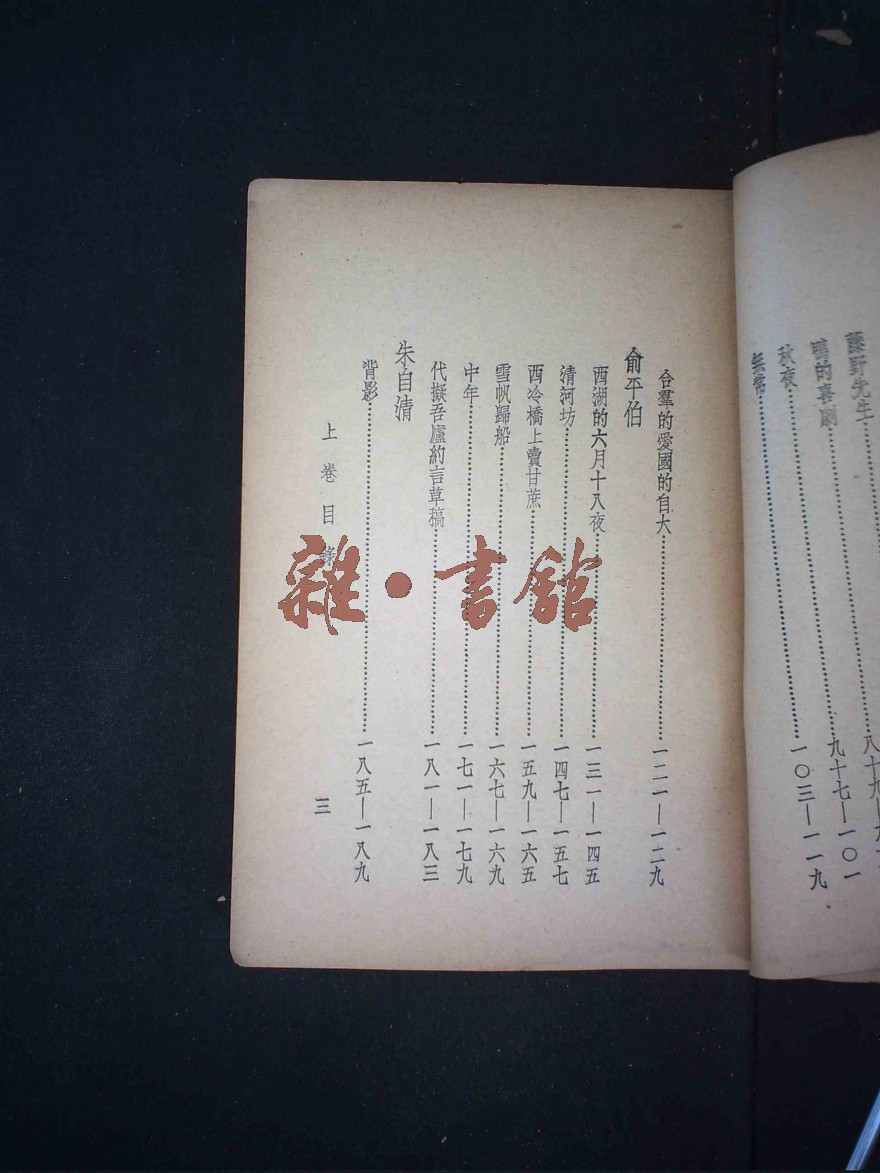 藤野先生⋯⋯八十九—九
鴨的喜劇⋯⋯九十七—一〇一
秋夜⋯⋯一〇三—一一九
無常
合羣的愛國的自大⋯⋯一二一—一二九
俞平伯
西湖的六月十八夜⋯⋯一三一—一四五
清河坊⋯⋯一四七—一五七
西冷橋上賣甘蔗⋯⋯一五九—一六五
雪帆歸船⋯⋯一六七—一六九
中年⋯⋯一七一—一七九
代擬吾廬約言草稿⋯⋯一八一—一八三
朱自清
背影⋯⋯一八五—一八九
上卷目錄 三
雜·書館